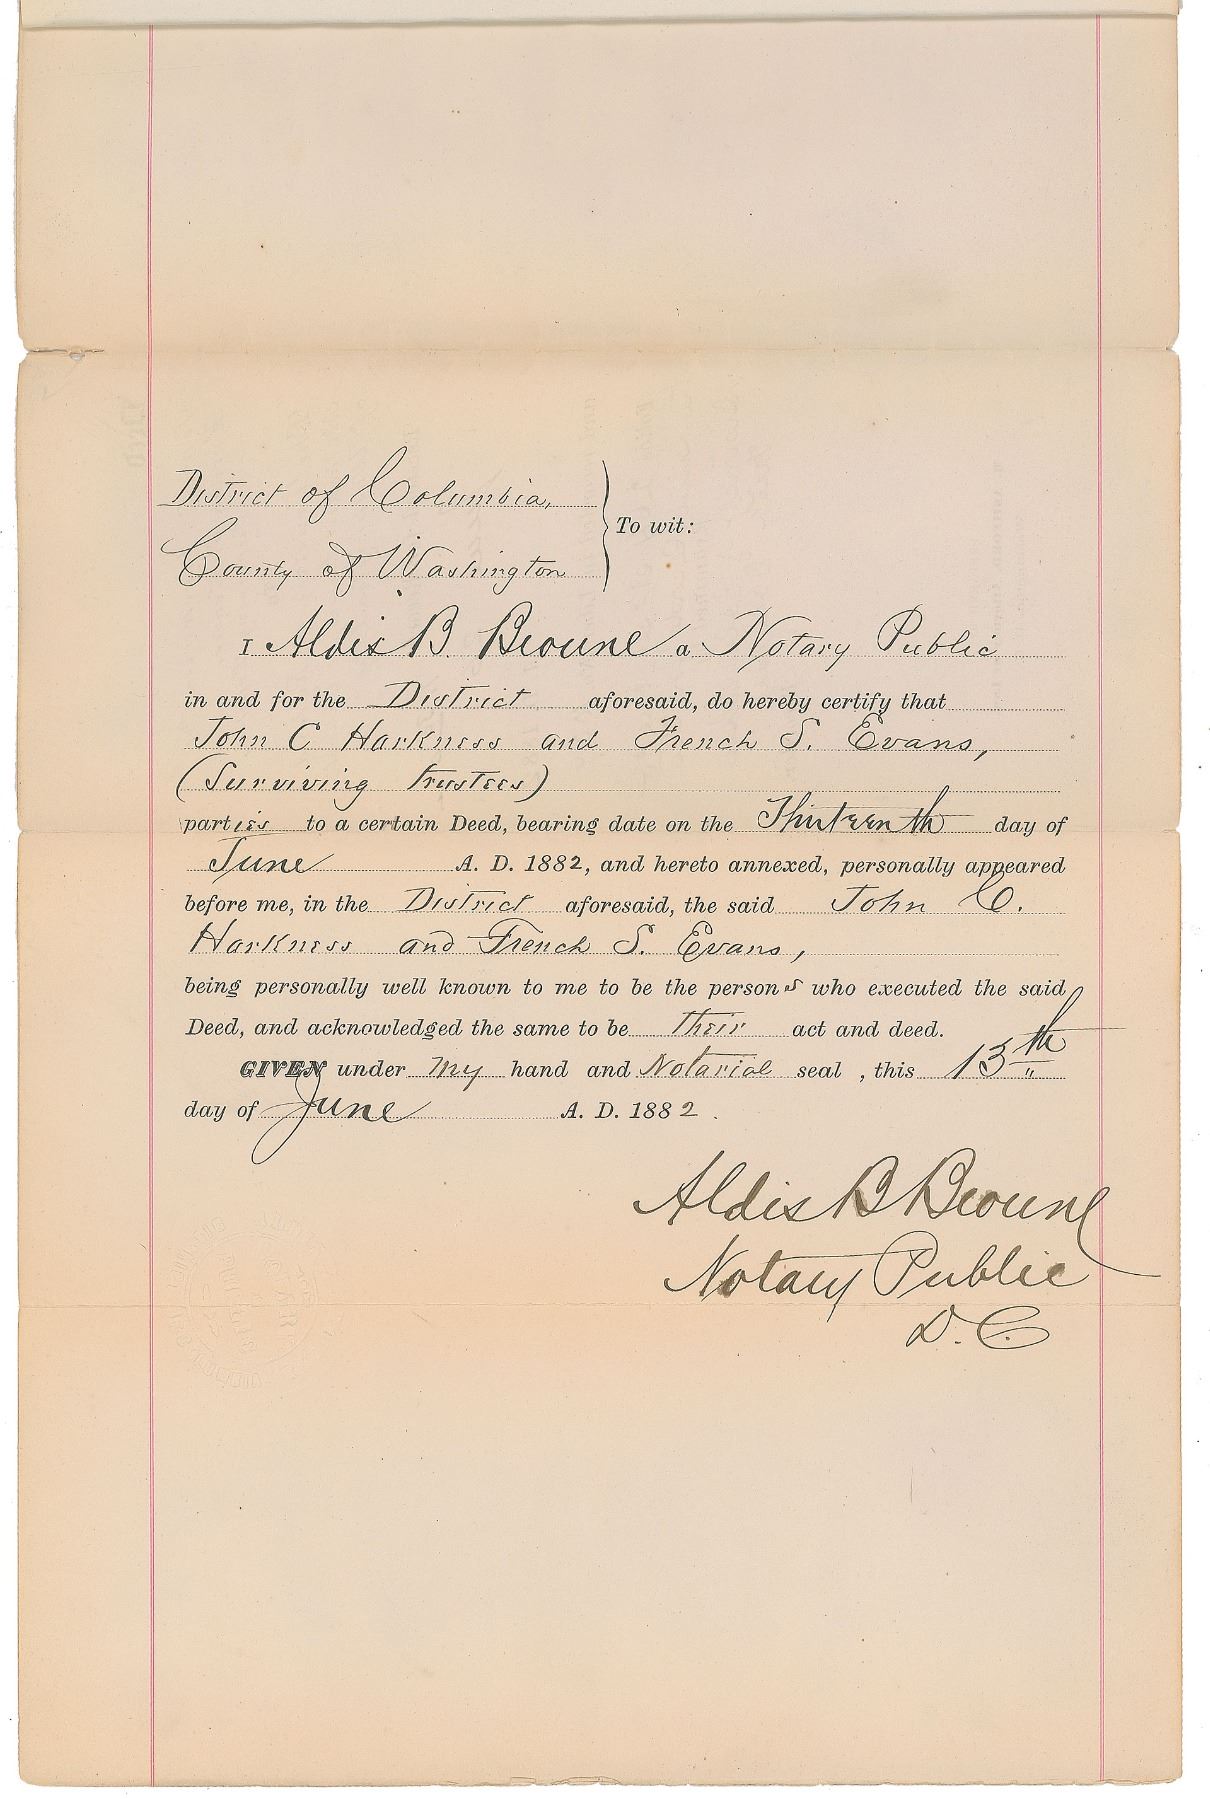 District of Columbia,
To wit:
County of Washington
I Aldis B. Browne a Notary Public
in and for the District aforesaid, do hereby certify that
John C Harkness and French S. Evans,
(Surviving trustees)
parties to a certain Deed, bearing date on the Thirteenth day of
June A. D. 1882, and hereto annexed, personally appeared
before me, in the District aforesaid, the said John C.
Harkness and French S. Evans,
being personally well known to me to be the persons who executed the said
Deed, and acknowledged the same to be their act and deed.
GIVEN under my hand and Notarial seal, this 13th
day of June A. D. 1882.
Aldis B Browne
Notary Public
D.C.